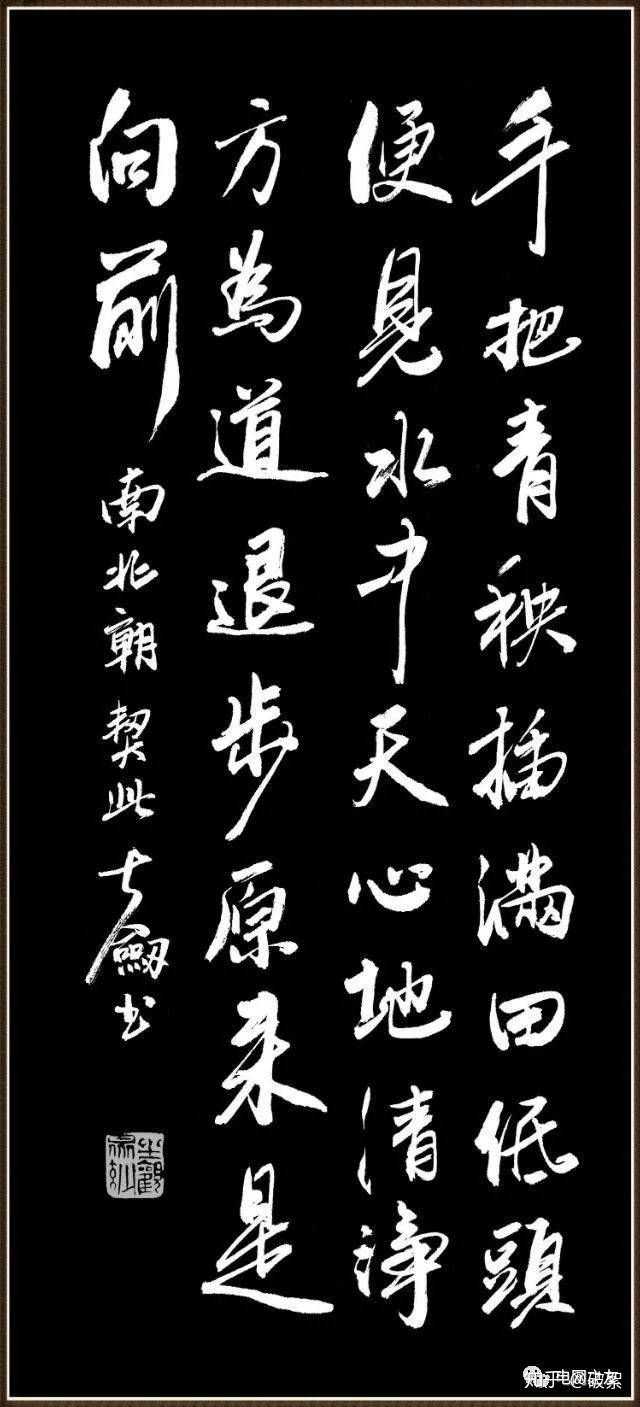 手把青秧插滿田低頭
便見水中天心地清淨
方為道退步原来是
向前 南北朝 契此 劒书
知乎 @破絮